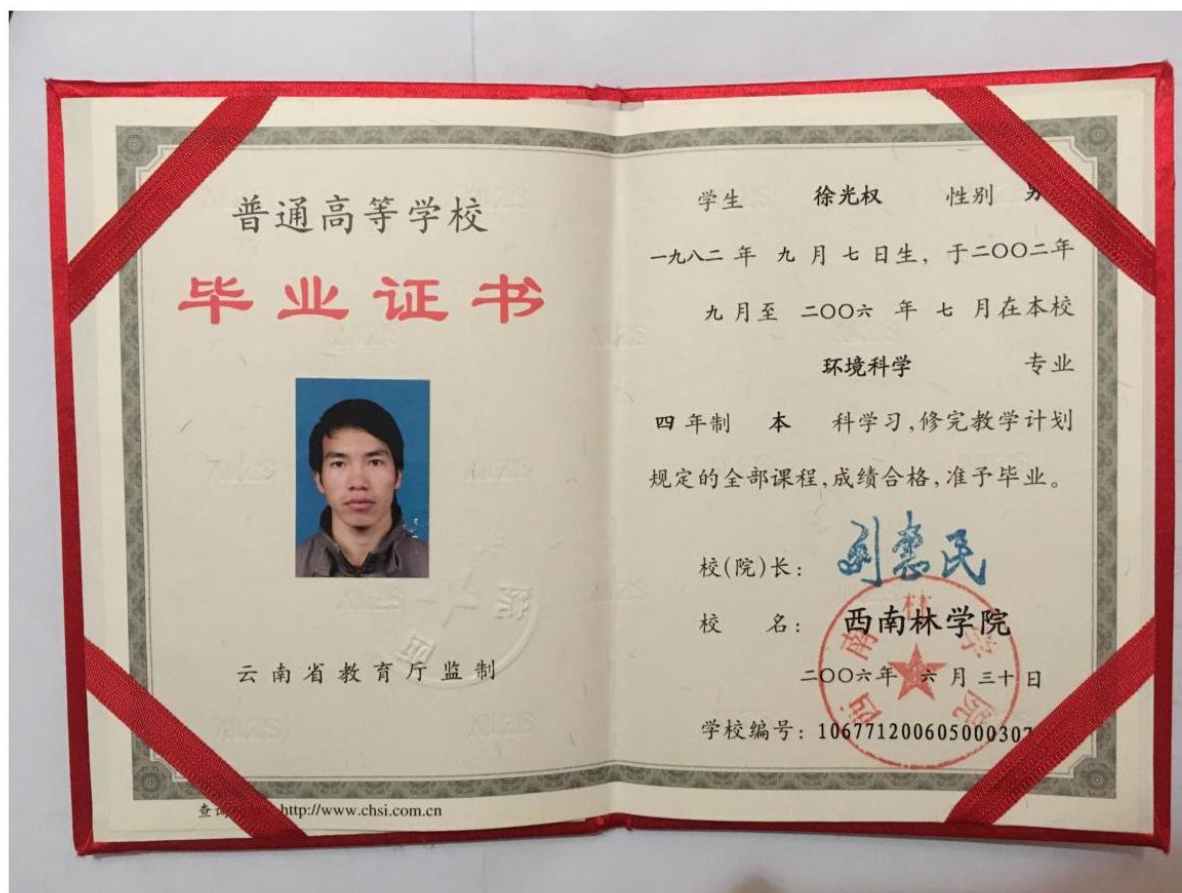 普通高等学校
毕业证书
云南省教育厅监制
http://www.chsi.com.cn
学生 徐光权 性别
一九八二 年 九 月 七 日生, 于二〇〇二年
九 月至 二〇〇六 年 七 月在本校
环境科学 专业
四 年制 本 科学习,修完教学计划
规定的全部课程,成绩合格,准予毕业。
校(院)长:
校 名: 西南林学院
二〇〇六年 六 月 三十 日
学校编号: 10677120060500030
西南林学院